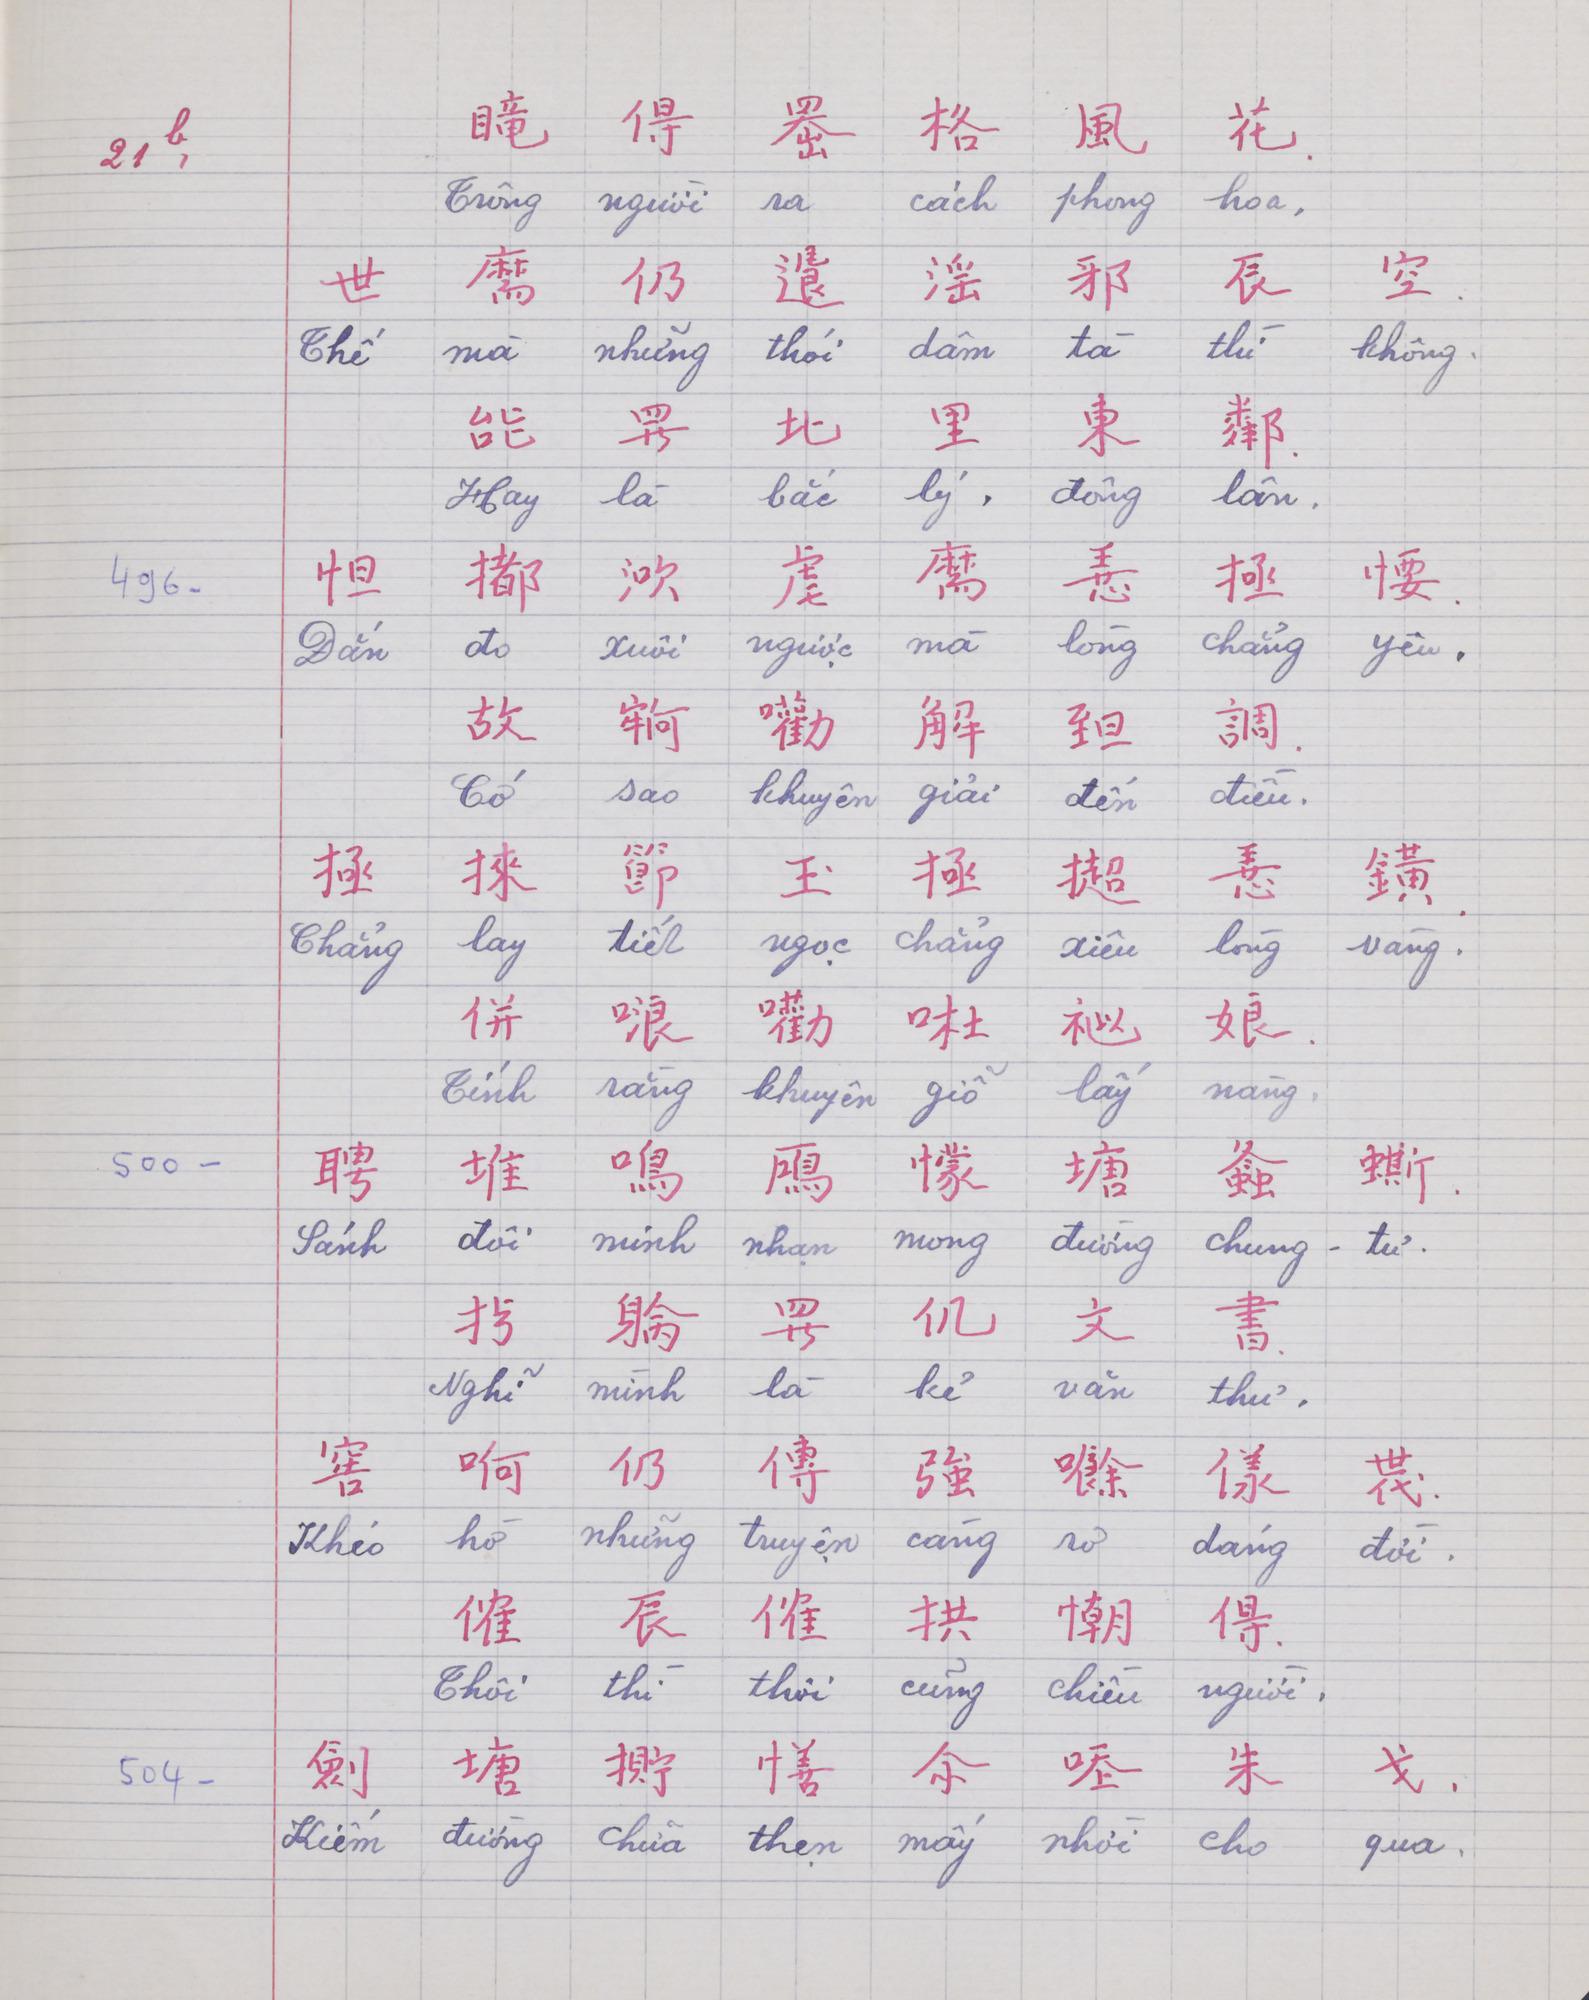 21b,
𥊚 得 𦋦 格 風 花.
Trông người ra cách phong hoa.
世 𢋾 仍 退 淫 邪 辰 空.
Thế mà những thói dâm tà thì không.
能 𱺵 北 里 東 鄰.
Hay là bắc lý, đông lân.
496-
怛 𢵋 㳄 虐 𢋾 𢚸 拯 𢞂.
Dắn đo xuôi ngược mà lòng chẳng yên.
故 𡨺 嚾 解 𦤾 調.
Cớ sao khuyên giải đến điều.
拯 𢯦 節 玉 拯 𢷰 𢚸 鐄.
Chẳng lay tiết ngọc chẳng xiêu lòng vàng.
併 哴 𡅳 𠰹 𥙩 娘.
Tính rằng khuyên giỗ lấy nàng.
500 -
聘 堆 鳴 鴈 懞 塘 螽 蟖.
Sánh đôi minh nhạn mong đường chung - tư.
𢪀 𨉟 𱺵 仉 文 書.
Nghĩ mình là kẻ văn thư.
窖 𠹚 仍 傳 強 𠾕 様 𠁀.
Khéo hồ những truyện càng rơ dáng đời.
傕 辰 傕 拱 𢢅 得.
Thôi thì thôi cũng chiều người.
504 -
劍 塘 𢷮 𢢆 尒 𠳨 朱 戈.
Kiếm đường chữa thẹn mấy nhời cho qua.